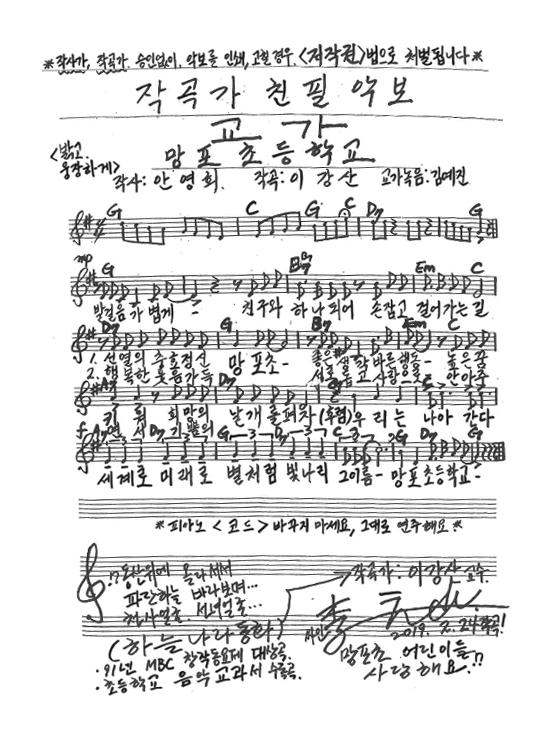 *작사가, 작곡가, 승인없이, 악보를 인쇄, 고칠경우, <저작권>법으로 처벌됩니다*
작곡가 친필 악보
교 가
<밝고 웅장하게>
망포 초등학교
작사: 안영희 작곡: 이강산 교가녹음: 김예진
G C G C D7 G
mp G B7 Em C
발걸음 가볍게 - 친구와 하나되어 손잡고 걸어가는 길
D7 G B7 Em C
1. 선열의 충효정신 망포초- 좋은 생각 바른행동- 높은꿈
2. 행복한 웃음가득
A7 D7 G C
키워 희망의 날개를펴자 (후렴) 우리는 나아 간다
f
세계로 미래로 별처럼 빛나리 그이름- 망포초등학교-
*피아노 <코드> 바꾸지 마세요, 그대로 연주해요*
동산위에 올라서서
파란하늘 바라보며...
천사얼굴. 선녀얼굴...
(하늘나라 동화)
· 91년 MBC 창작동요제 대상곡.
· 초등학교 음악교과서 수록곡.
작곡가: 이강산 교수.
사인
2019. 2. 24 작곡!
망포초 어린이들
사랑해요.!?